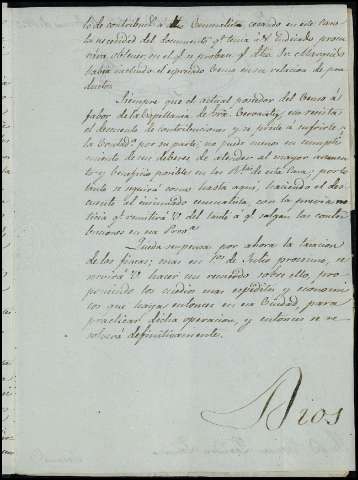 de contribucn. á
Censualista cuando en este caso
la necesidad del documento qe. tenia el Yndicado procu
rára obtener en el qe. se probara qe. dho. Sr. Marqués
habia incluido el espresado Censo en su relacion de pro
ductos.
Siempre que el actual poseedor del Censo á
fabor de la Capellania de , no resista
el descuento de contribuciones y se preste á sufrirle
la Contadª. por su parte, no puede menos en cumpli
miento de sus deberes de atender al mayor aumen
to y beneficio posible en las Rtas. de esta Casa; por lo
tanto se seguirá como hasta aqui, haciendo el des
cuento al insinuado censualista, con la previa no
ticia qe. remitirá V. del tanto á qe. salgan las contri
buciones en esa Provª.
Queda suspensa por ahora la tasacion
de las fincas; mas en pros. de Julio procsimo, se
servirá V. hacer un recuerdo sobre ello, pro
poniendo los medios mas espeditos y economi
cos que haya entonces en esa Ciudad para
practicar dicha operacion, y entonces se re
solverá definitivamente.
Dios